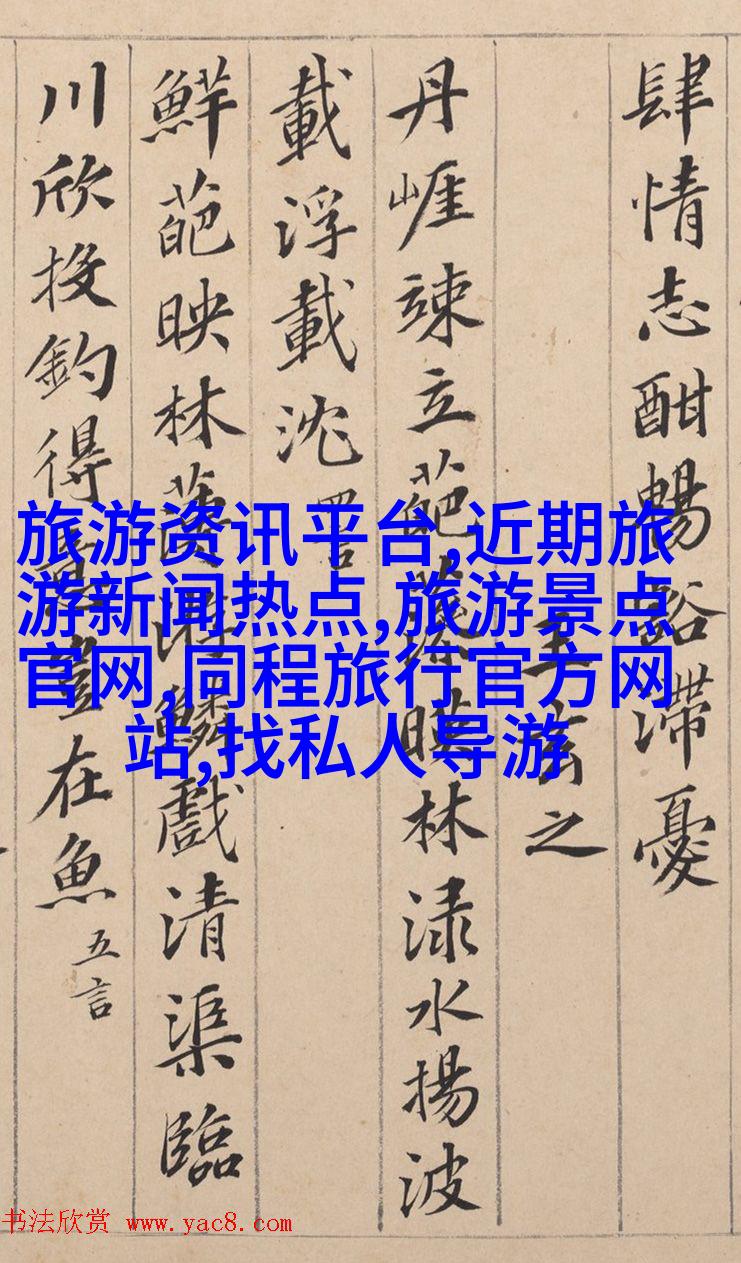 肆情志酣暢豁滯憂
王玄之
丹崕竦立葩藻暎林渌水揚波
載浮載沈 四言
鮮葩映林薄游鱗戲清渠臨
川欣投釣得意豈在魚 五言
旅游资讯平台,近期旅
游新闻热点,旅游景点
官网,同程旅行官方网
站,找私人导游
书法欣赏 www.yac8.com